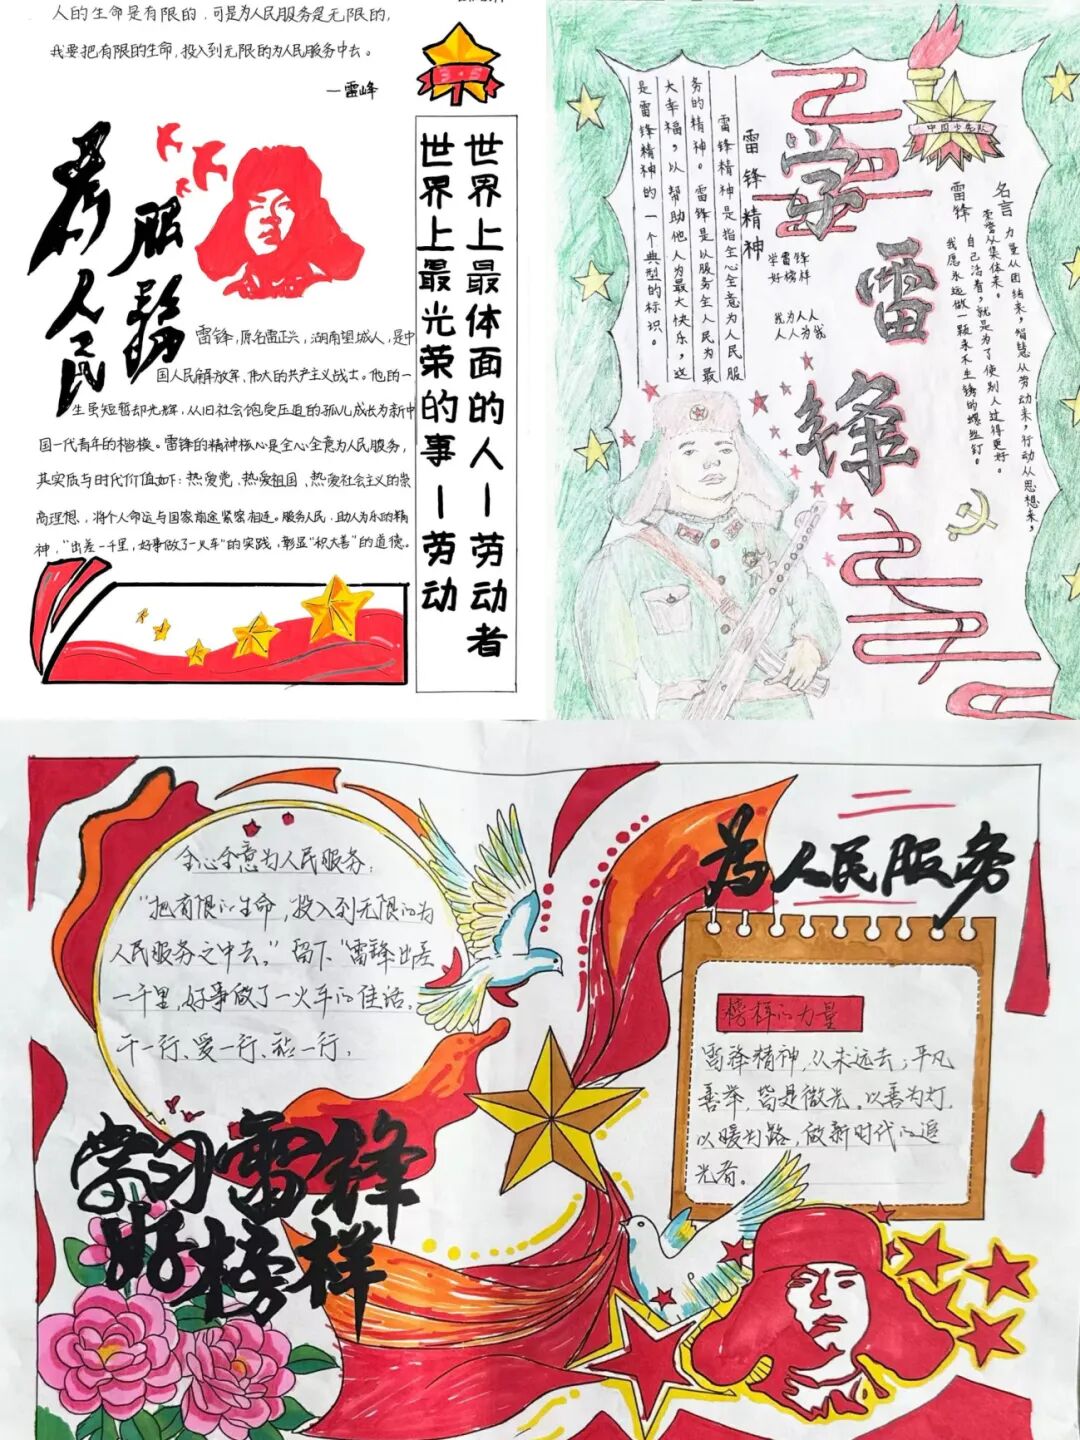 人的生命是有限的，可是为人民服务是无限的，
我要把有限的生命，投入到无限的为人民服务中去。
—雷峰
为人民
服务
雷锋，原名雷正兴，湖南望城人，是中
国人民解放军，伟大的共产主义战士。他的一
生虽短暂却光辉，从旧社会饱受压迫的孤儿成长为新中
国一代青年的楷模。雷锋的精神核心是全心全意为人民服务，
其实质与时代价值如下：热爱党、热爱祖国、热爱社会主义的崇
高理想、，将个人命运与国家前途紧密相连。服务人民，助人为乐的精
神，“出差一千里，好事做了一火车”的实践，彰显“积大善”的道德。
世界上最体面的人—劳动者
世界上最光荣的事—劳动
学雷锋
中国少先队
雷锋精神
雷锋精神是指全心全意为人民服
务的精神。雷锋是以服务全人民为最
大幸福，以帮助他人为最大快乐，这
是雷锋精神的一个典型的标识。
学雷锋
好榜样
我为人人
人人为我
雷锋
名言
力量从团结来，智慧从劳动来，行动从思想来，
荣誉从集体来。
自己活着，就是为了使别人过得更好。
我愿永远做一颗永不生锈的螺丝钉。
全心全意为人民服务：
“把有限的生命，投入到无限的为
人民服务之中去。”留下“雷锋出差
一千里，好事做了一火车的佳话。
干一行、爱一行、钻一行，
为人民服务
榜样的力量
雷锋精神，从未远去；平凡
善举，皆是微光。以善为灯，
以暖为路，做新时代的追
光者。
学习雷锋
好榜样